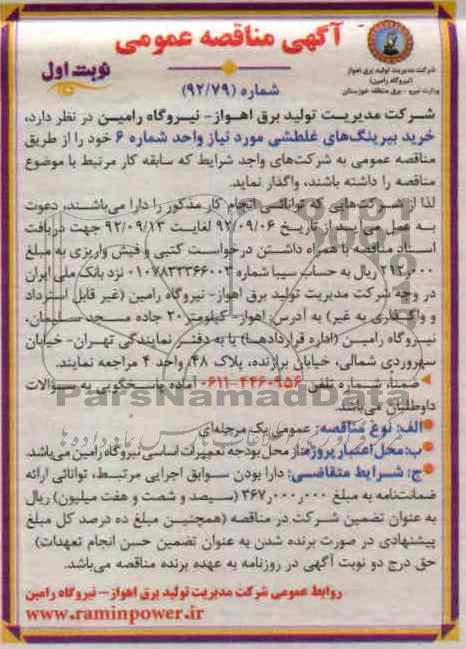 آگهی مناقصه عمومی
شرکت مدیریت تولید برق اهواز
(نیروگاه رامین)
وزارت نیرو - برق منطقه خوزستان
نوبت اول
شماره (۹۲/۷۹)
شرکت مدیریت تولید برق اهواز- نیروگاه رامین در نظر دارد،
خرید بیرینگ‌های غلطشی مورد نیاز واحد شماره ۶ خود را از طریق
مناقصه عمومی به شرکت‌های واجد شرایط که سابقه کار مرتبط با موضوع
مناقصه را داشته باشند، واگذار نماید.
لذا از شرکت‌هایی که توانائی انجام کار مذکور را دارا می‌باشند، دعوت
به عمل می‌آید از تاریخ ۹۲/۰۹/۰۶ لغایت ۹۲/۰۹/۱۳ جهت دریافت
اسناد مناقصه با همراه داشتن درخواست کتبی و فیش واریزی به مبلغ
۲۱۲٫۰۰۰ ریال به حساب سیبا شماره ۰۱۰۷۸۳۳۳۶۶۰۰۳ نزد بانک ملی ایران
در وجه شرکت مدیریت تولید برق اهواز- نیروگاه رامین (غیر قابل استرداد
و واگذاری به غیر) به آدرس: اهواز- کیلومتر ۲۰ جاده مسجد سلیمان،
نیروگاه رامین (اداره قراردادها) یا به دفتر نمایندگی تهران- خیابان
سهروردی شمالی، خیابان برازنده، پلاک ۴۸، واحد ۴ مراجعه نمایند.
ضمناً، شماره تلفن ۴۴۶۰۹۵۶-۰۶۱۱ آماده پاسخگویی به سوالات
داوطلبان می‌باشد.
الف: نوع مناقصه: عمومی یک مرحله‌ای
ب: محل اعتبار پروژه: از محل بودجه تعمیرات اساسی نیروگاه رامین می‌باشد.
ج: شرایط متقاضی: دارا بودن سوابق اجرایی مرتبط، توانائی ارائه
ضمانت‌نامه به مبلغ ۳۶۷٫۰۰۰٫۰۰۰ (سیصد و شصت و هفت میلیون) ریال
به عنوان تضمین شرکت در مناقصه (همچنین مبلغ ده درصد کل مبلغ
پیشنهادی در صورت برنده شدن به عنوان تضمین حسن انجام تعهدات)
حق درج دو نوبت آگهی در روزنامه به عهده برنده مناقصه می‌باشد.
روابط عمومی شرکت مدیریت تولید برق اهواز - نیروگاه رامین
www.raminpower.ir
ParsNamadData